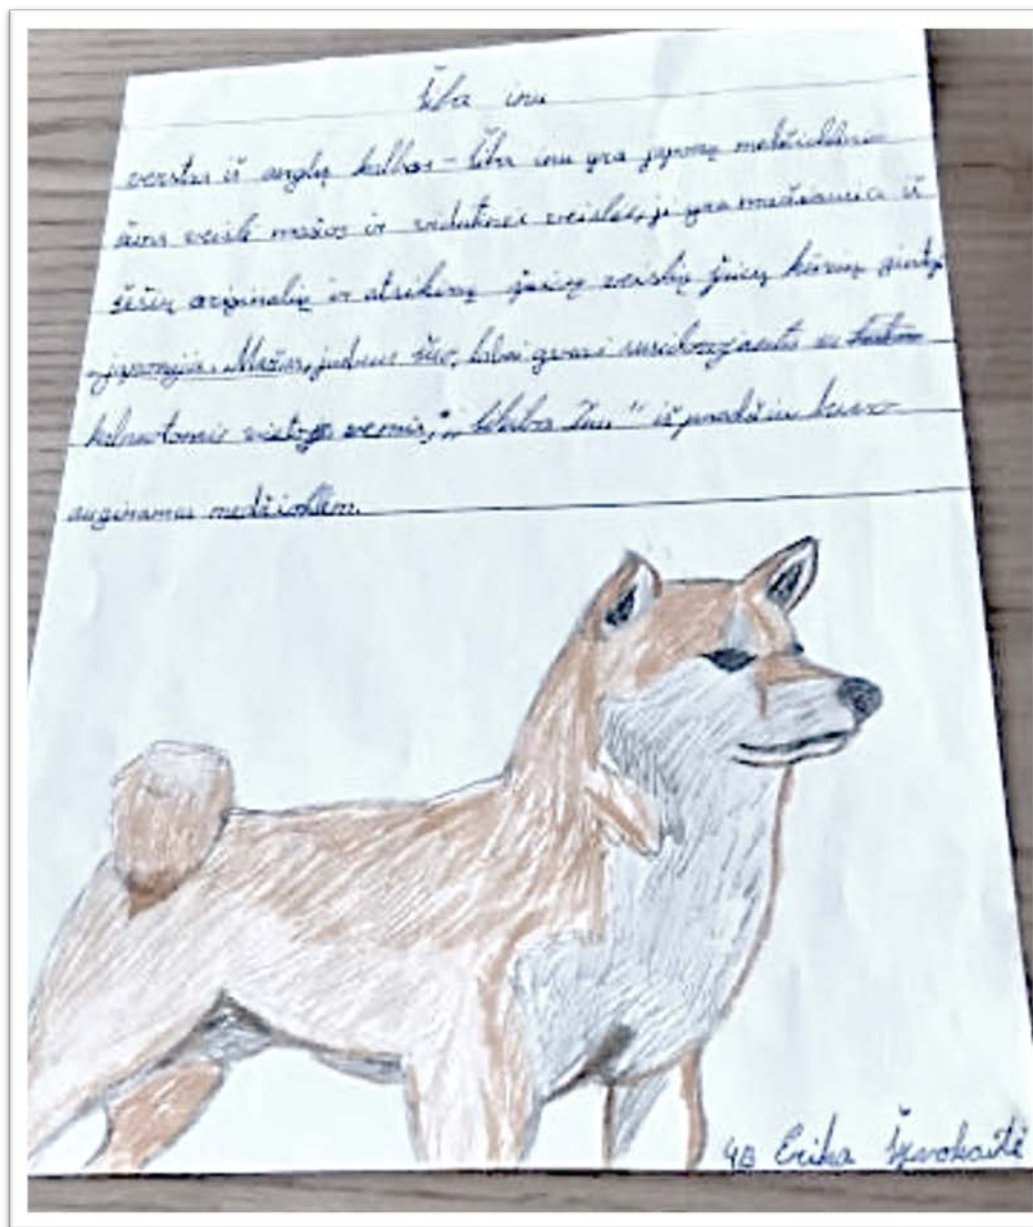 Šiba inu
verstas iš anglų kalbos - Šiba inu yra japonų medžioklinio
šuns veislė mažos ir vidutinės veislės, ji yra mažiausia iš
šešių originalių ir atskirų šunų veislių šunų kūrinių
japonijos. Mažas, judrus šuo, labai gerai susidorojantis su
kalnuotomis vietomis, "Shiba Inu" iš pradžių buvo
auginamas medžioklėm.
4B Erika